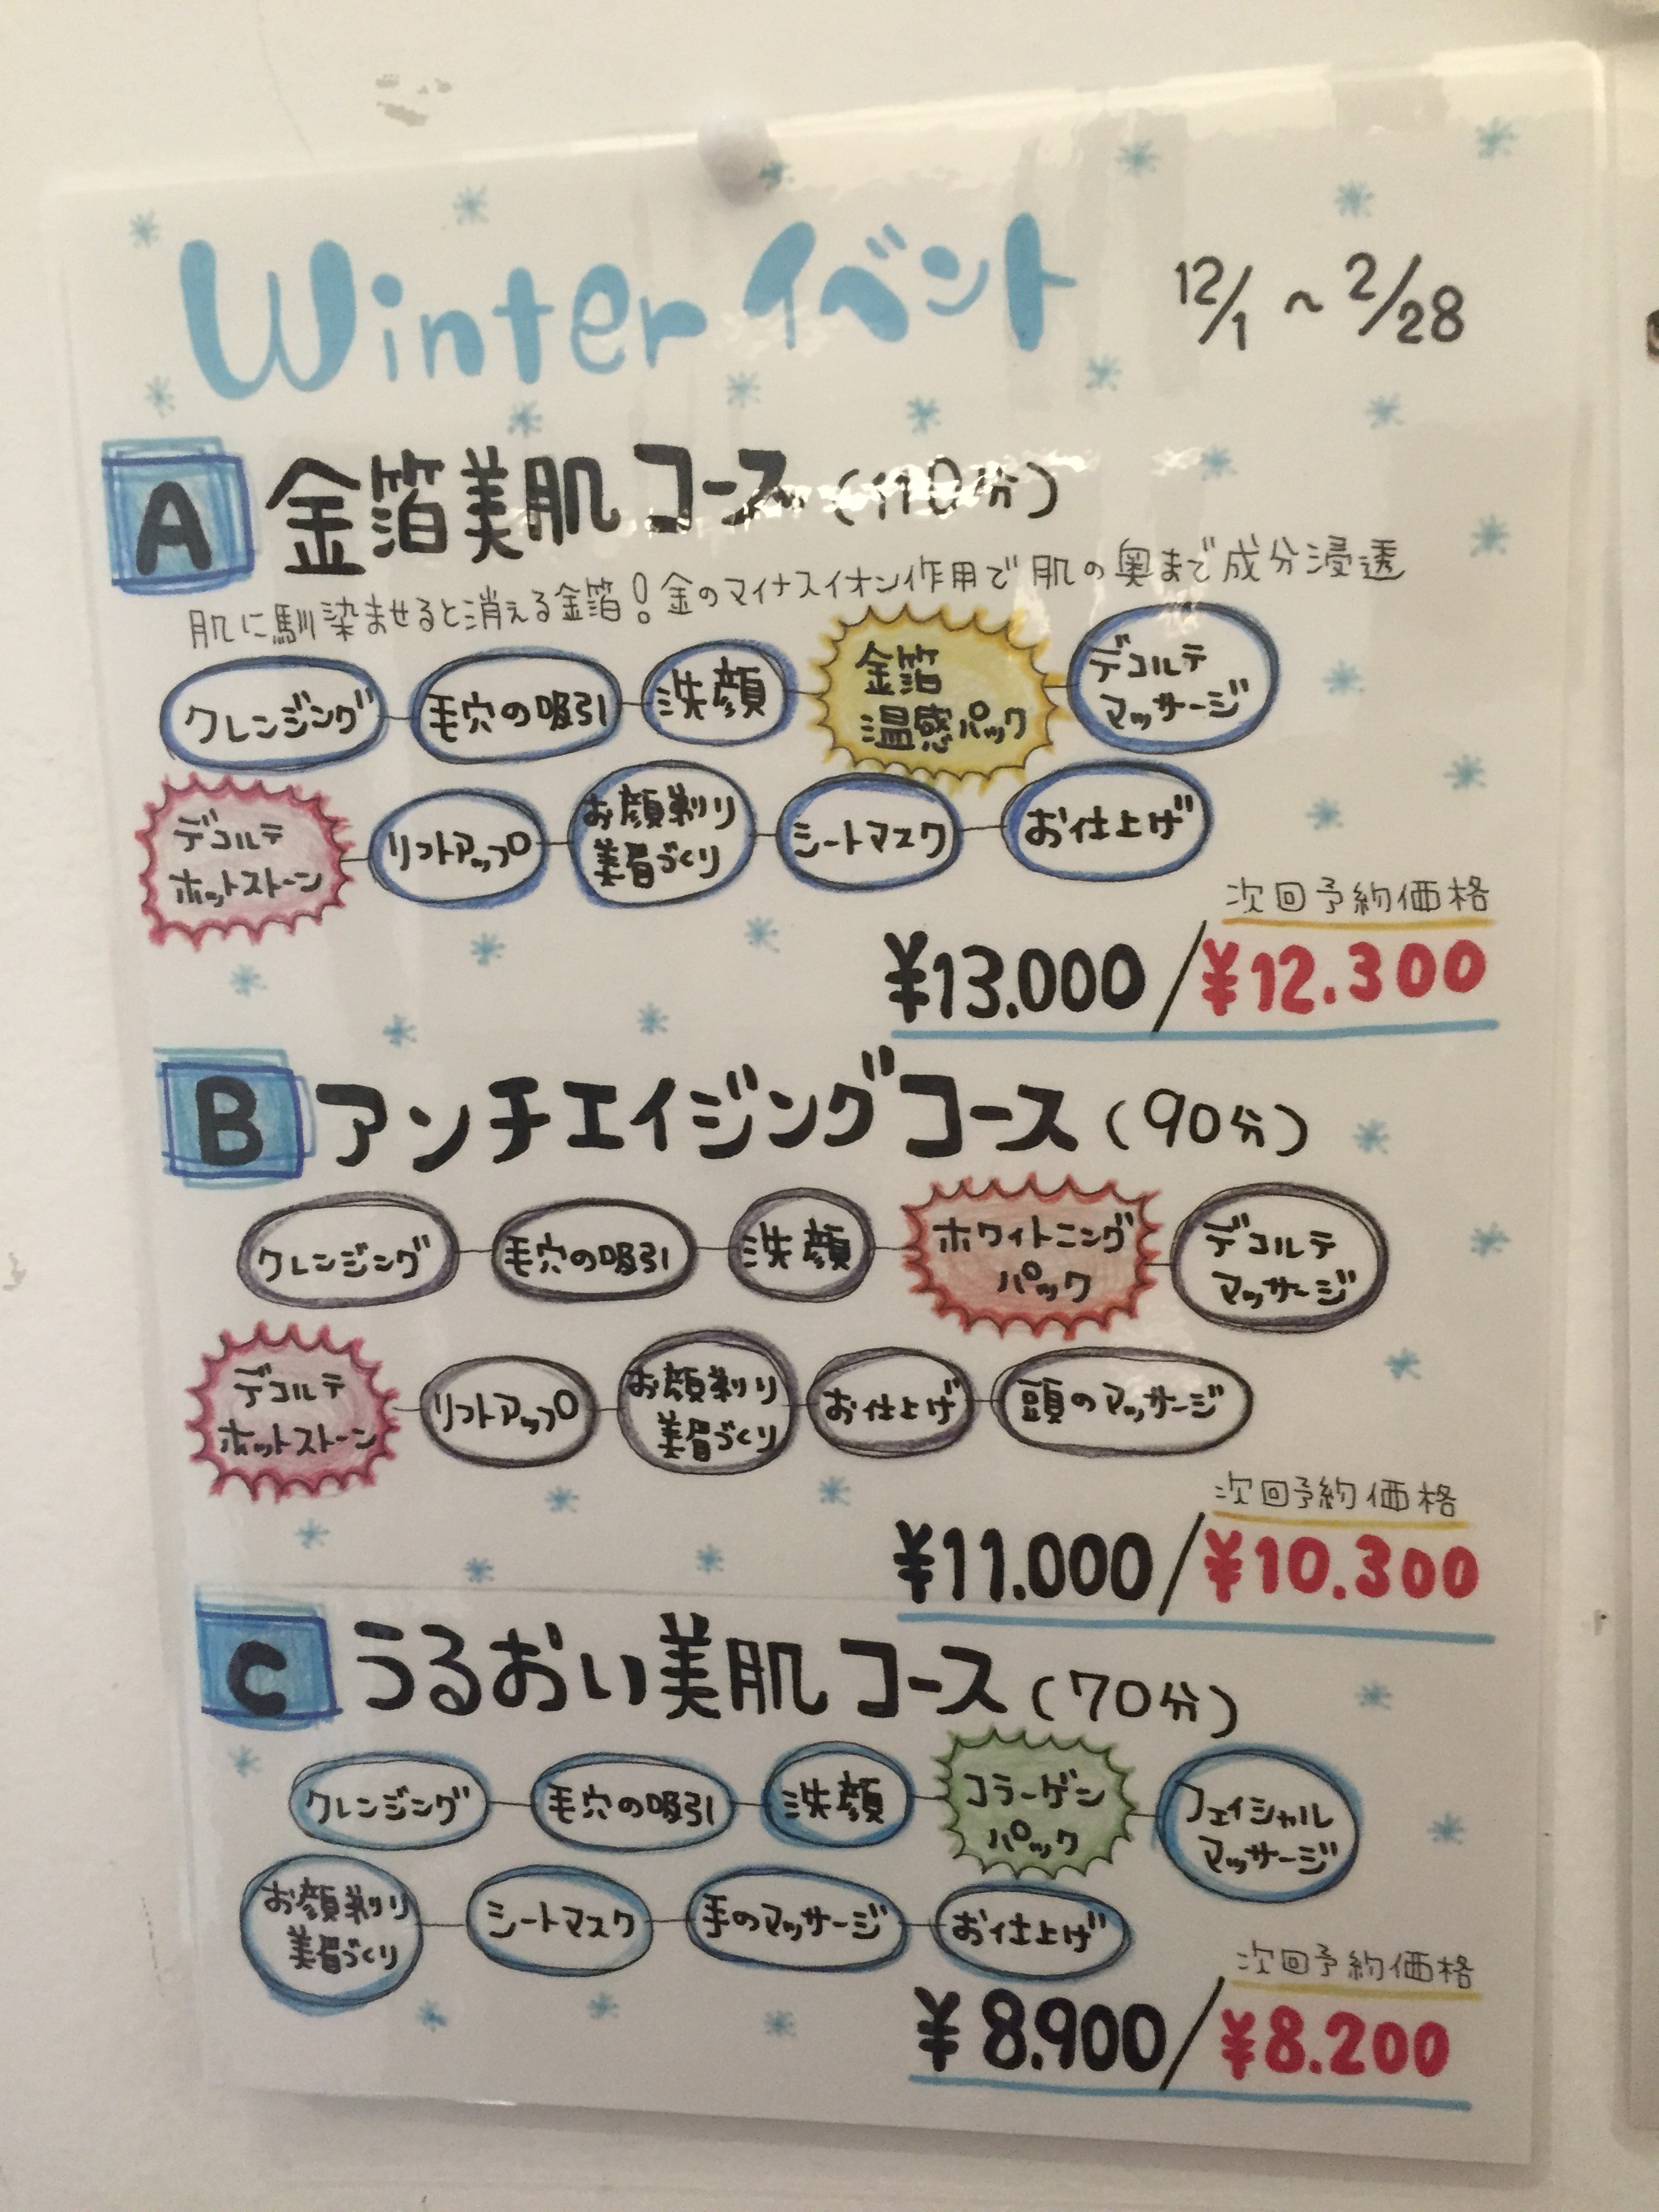 Winter イベント 12/1 ~ 2/28
A 金箔美肌コース (110分)
肌に馴染ませると消える金箔! 金のマイナスイオン作用で肌の奥まで成分浸透
クレンジング 毛穴の吸引 洗顔 金箔 温感パック デコルテ マッサージ
デコルテ ホットストーン リフトアップ お顔剃り 美眉づくり シートマスク お仕上げ
次回予約価格
¥13.000 / ¥12.300
B アンチエイジングコース (90分)
クレンジング 毛穴の吸引 洗顔 ホワイトニング パック デコルテ マッサージ
デコルテ ホットストーン リフトアップ お顔剃り 美眉づくり お仕上げ 頭のマッサージ
次回予約価格
¥11.000 / ¥10.300
C うるおい美肌コース (70分)
クレンジング 毛穴の吸引 洗顔 コラーゲン パック フェイシャル マッサージ
お顔剃り 美眉づくり シートマスク 手のマッサージ お仕上げ
次回予約価格
¥8.900 / ¥8.200